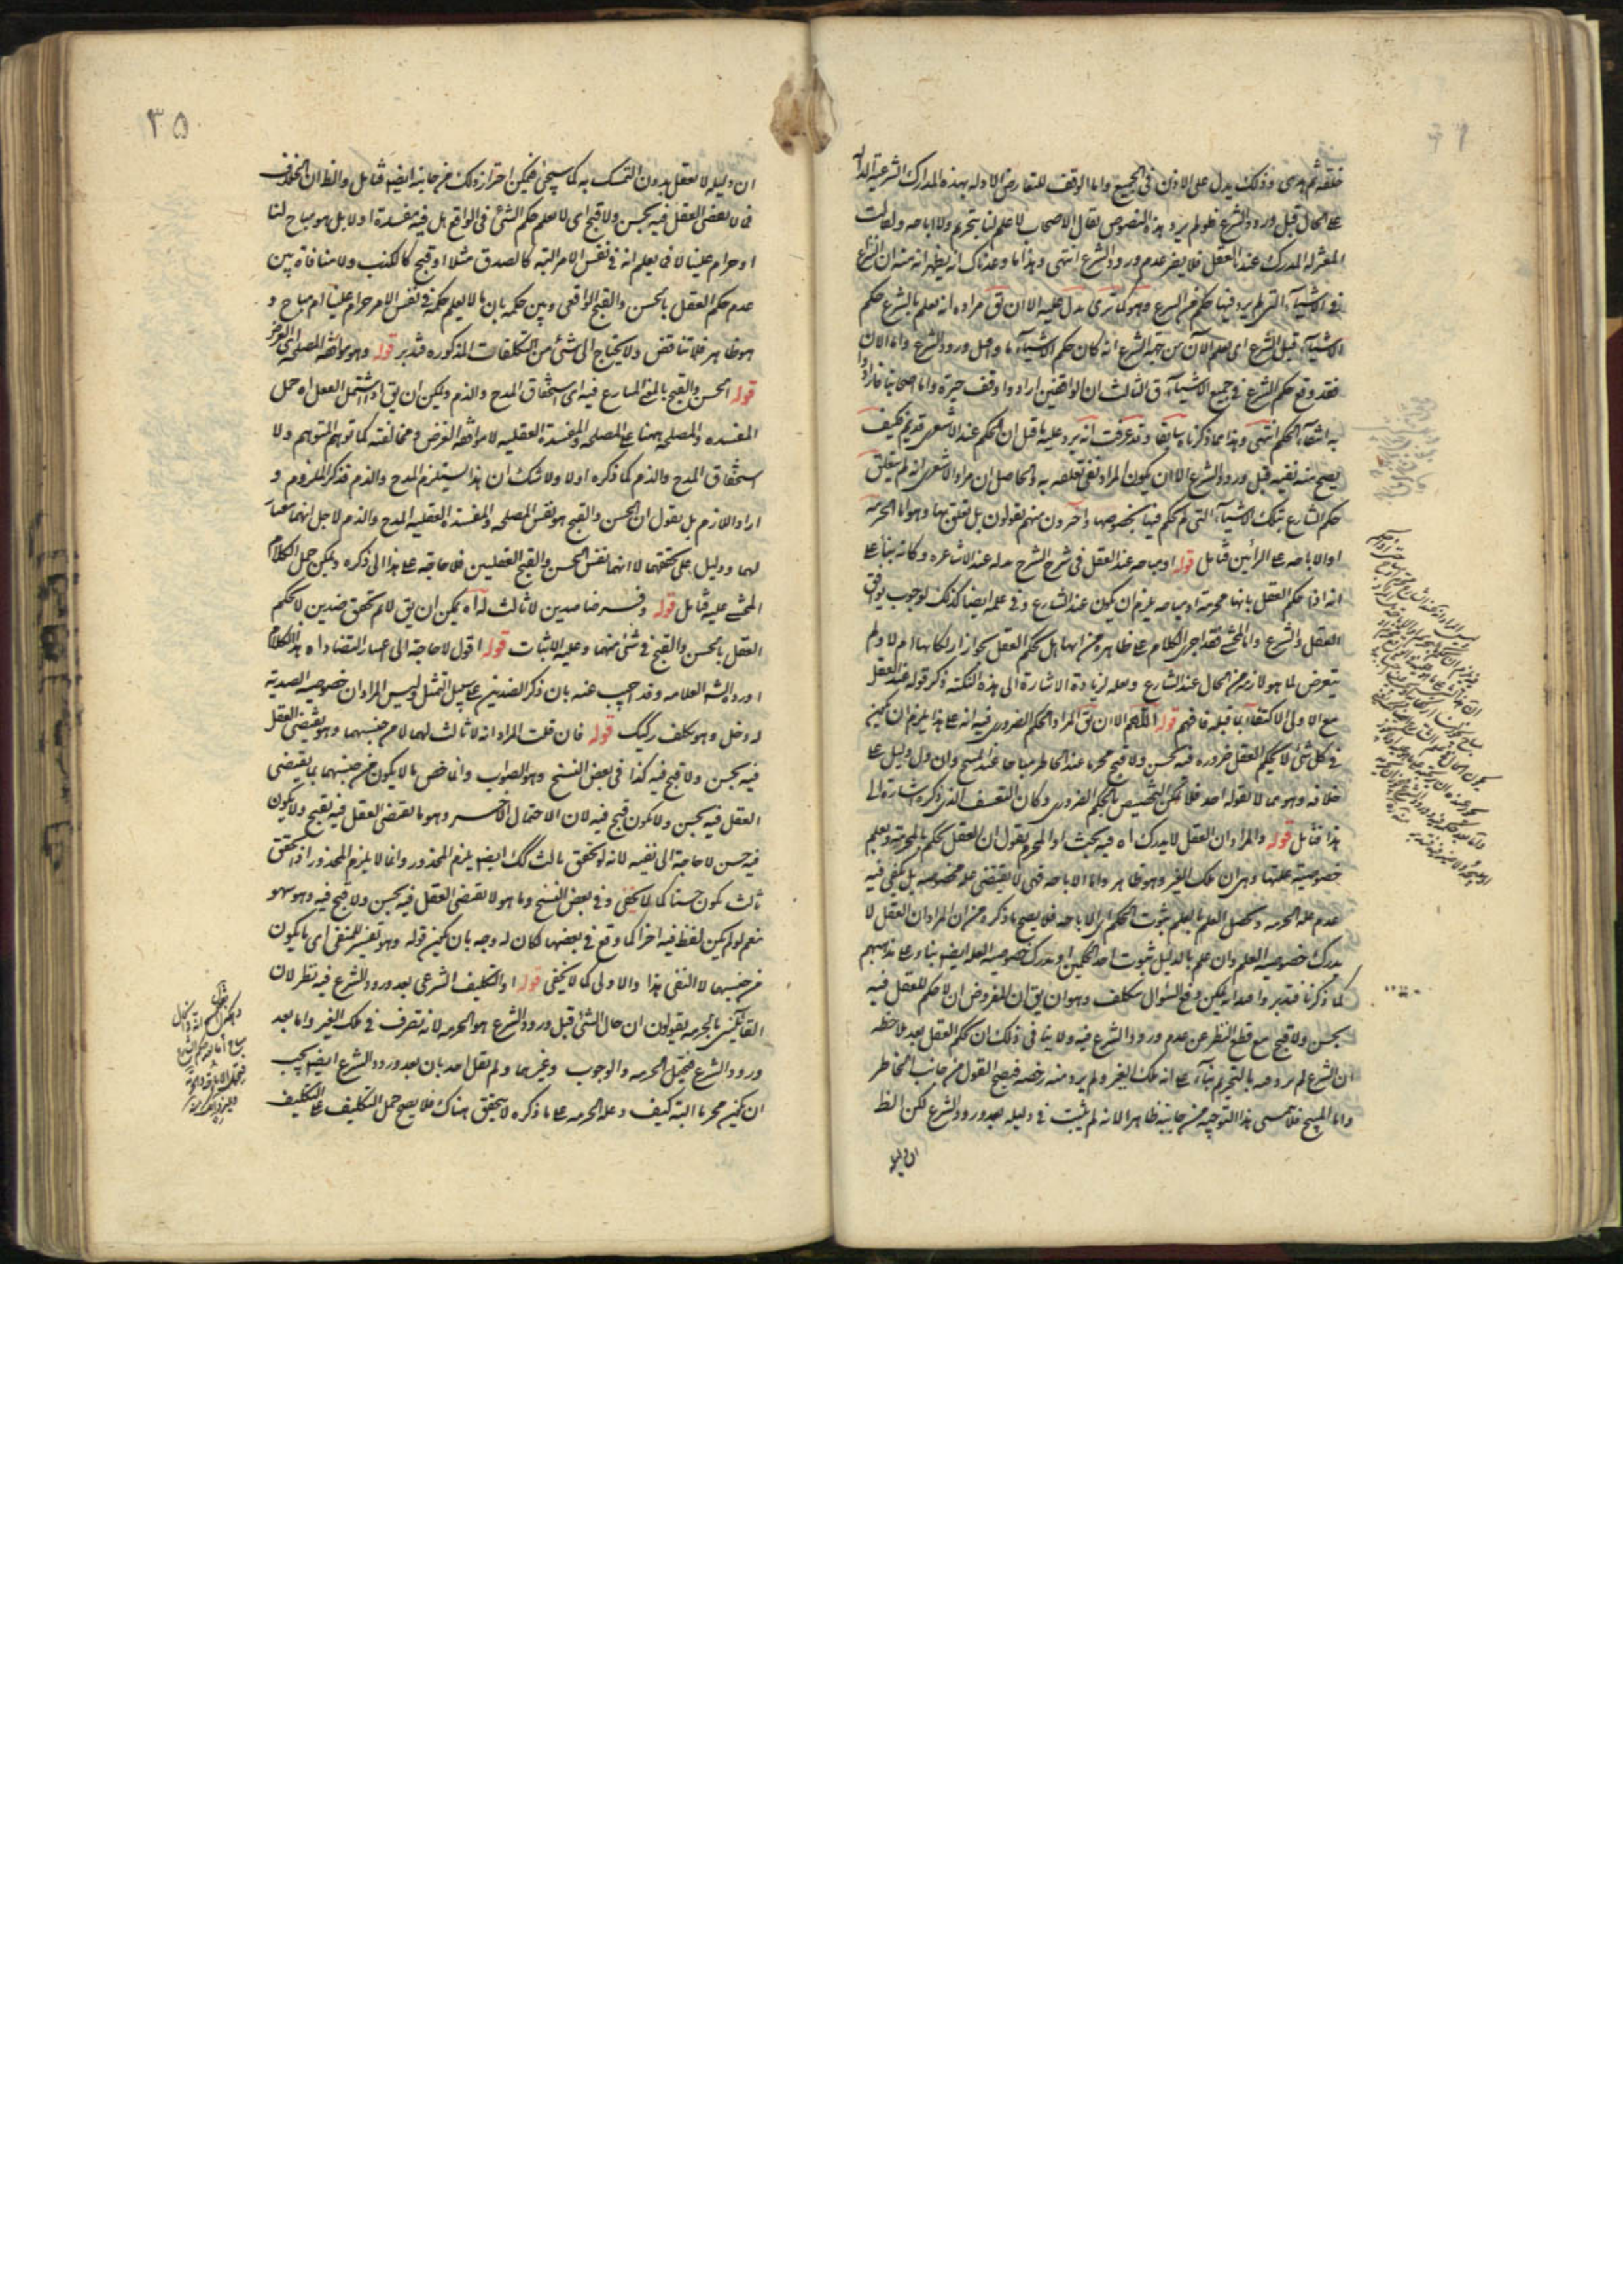 خلقه ثم هدى وذلك يدل على الاذن فى الجميع واما الوقف للتعارض الادله بهذه المدارك الشرعية الداله
على الحال قبل ورود الشرع فلو لم يرد هذه النصوص لقال الاصحاب لا علم لنا بتحريم ولا اباحه ولقالت
المعتزله المدرك عندنا العقل فلا يضر عدم ورود الشرع انتهى وهذا ما وعدناك انه يظهر انه منه ان النزاع
فى الاشياء التى لم يرد فيها حكم من الشرع وهو كما ترى يدل عليه الا ان يق مراده انه يعلم بالشرع حكم
الاشياء قبل الشرع اى يعلم الآن من جهة الشرع انه كان حكم الاشياء ما قبل ورود الشرع واما الان
فقد وقع حكم الشرع فى جميع الاشياء ق الثالث ان الواقفين ارادوا وقف حيرة واما اصحابنا فارادوا
به انتفاء الحكم انتهى وهذا مما ذكرناه سابقا وقد عرفت انه يرد عليه ما قيل ان الحكم عند الاشعرى قديم فكيف
يصح منه نفيه قبل ورود الشرع الا ان يكون المراد نفى تعلقه به والحاصل ان مراد الاشعرى انه لم يتعلق
حكم الشارع بتلك الاشياء التى لم يحكم فيها بخصوصها وآخرون منهم يقولون بل تعلق بها وهو اما الحرمه
او الاباحه على الرأيين فتأمل قوله او مباحه عند العقل فى شرح الشرح بدله عند الاشاعره وكانه بناء على
انه اذا حكم العقل بانها محرمة او مباحه يلزم ان يكون عند الشارع وفى علمه ايضا كذلك لوجوب توافق
العقل والشرع واما المحشى فقد اجرى الكلام على ظاهره من انها هل يحكم العقل بجواز ارتكابها ام لا ولم
يتعرض لما هو لازم من الحال عند الشارع ولعله لزيادة الاشارة الى هذه النكته ذكر قوله عند العقل
مع الاولى الاكتفاء بما قبله فافهم قوله اللهم الا ان يق المراد الحكم الضرورى فيه انه على هذا يلزم ان يكون
فى كل شئ لا يحكم العقل ضروره فيه بحسن ولا قبح محرما عند الحاظر مباحا عند المبيح وان دل دليل على
خلافه وهو مما لا يقوله احد فلا يمكن التخصيص بالحكم الضرورى وكان التعسف الذى ذكره اشارة الى
هذا فتأمل قوله والمراد ان العقل لا يدرك اه فيه بحث اذ المحرم يقول ان العقل يحكم بالحرمة ويعلم
خصوصية علتها وهى ان ملك الغير وهو ظاهر واما الاباحه فهى لا يقتضى علة مخصوصه بل يكفى فيه
عدم علة الحرمه وتحصل العلم بالعلم بثبوت الحكم اى الاباحه فلا يصح ما ذكره من ان المراد ان العقل لا
يدرك خصوصية العلم وان علم بالدليل ثبوت احد الحكمين او يدرك خصوصية العله ايضا بناء على مذهبهم
كما ذكرنا فتدبر واعلم انه يمكن دفع السؤال بتكلف وهو ان يق ان المفروض ان لا حكم للعقل فيه
بحسن ولا قبح مع قطع النظر عن عدم ورود الشرع فيه ولا ينافى ذلك ان يحكم العقل بعد ملاحظه
ان الشرع لم يرد فيه بالتحريم بناء على انه ملك الغير ولم يرد منه رخصه فيصح القول من جانب الحاظر
واما المبيح فلا يتمشى هذا التوجيه من جانبه ظاهرا لانه لم يثبت فى دليله بعد ورود الشرع لكن الظ
ان دليله
٣٥
ان دليله لا يعقل بدون التمسك به كما سيجئ فيمكن اجراء ذلك من جانبه ايضا فتأمل والظ ان الخلاف
فى لا يقضى العقل فيه بحسن ولا قبح اى لا يعلم حكم الشئ فى الواقع هل فيه مفسدة او لا بل هو مباح لنا
او حرام علينا لا فى يعلم انه فى نفس الامر البته كالصدق مثلا او قبح كالكذب ولا منافاة بين
عدم حكم العقل بالحسن والقبح الواقعى وبين حكمه بان ما لا يعلم حكمه فى نفس الامر حرام علينا ام مباح و
هو ظاهر فلا تناقض ولا يحتاج الى شئ من التكلفات المذكوره فتدبر قوله وهو موافقه المصلحة اى الغرض
قوله الحسن والقبح بالمعنى المتنازع فيه اى استحقاق المدح والذم ويمكن ان يق اذا اشتمل الفعل اه حمل
المفسده والمصلحه ههنا على المصلحه والمفسدة العقليه لا موافقه الغرض ومخالفته كما توهم المتوهم ولا
استحقاق المدح والذم كما ذكره اولا ولا شك ان هذا يستلزم المدح والذم فذكر الملزوم و
اراد اللازم بل يقول ان الحسن والقبح هو نفس المصلحه والمفسدة العقليه المدح والذم لاجل انهما
لهما ودليل على تحققهما لا انهما نفس الحسن والقبح العقليين فلا حاجة على هذا الى ذكره ويمكن حمل الكلام
المحشى عليه فتأمل قوله وفى ضدين لا ثالث له اه يمكن ان يق لا تحقق ضدين لا يحكم
العقل بالحسن والقبح فى شئ منهما وعليه الاثبات قوله اقول لا حاجة الى اعتبار التضاد اه هذا الكلام
اورده الش العلامه وقد اجيب عنه بان ذكر الضدين على سبيل التمثيل وليس المراد ان خصوصيه الضديه
له دخل وهو تكلف ركيك قوله فان قلت المراد انه لا ثالث لهما لا من جنسهما وهو يقتضى العقل
فيه بحسن ولا قبح فيه كذا فى بعض النسخ وهو الصواب وانما خص بما لا يكون من جنسهما بما يقتضى
العقل فيه بحسن ولا يكون قبح فيه لان الاحتمال الاخر وهو ما يقتضى العقل فيه بقبح ولا يكون
فيه حسن لا حاجة الى نفيه لانه لو تحقق ثالث كك ايضا يلزم المحذور وانما لا يلزم المحذور اذا تحقق
ثالث يكون حسنا كما لا يخفى وفى بعض النسخ وما هو لا يقضى العقل فيه بحسن ولا قبح فيه وهو سهو
نعم لو لم يكن لفظ فيه اخرا كما وقع فى بعضها لكان له وجه بان يكون قوله وهو تفسير للمنفى اى ما يكون
من جنسهما لا النفى هذا والاولى كما لا يخفى قوله اذ التكليف الشرعى بعد ورود الشرع فيه نظر لان
القائلين بالحرمه يقولون ان حال الشئ قبل ورود الشرع هو الحرمه لانه تصرف فى ملك الغير واما بعد
ورود الشرع فيحتمل الحرمه والوجوب وغيرهما ولم يقل احد بان بعد ورود الشرع ايضا يجب
ان يكون محرما البته كيف وعلة الحرمه على ما ذكره لا يتحقق هناك فلا يصح حمل التكليف على التكليف